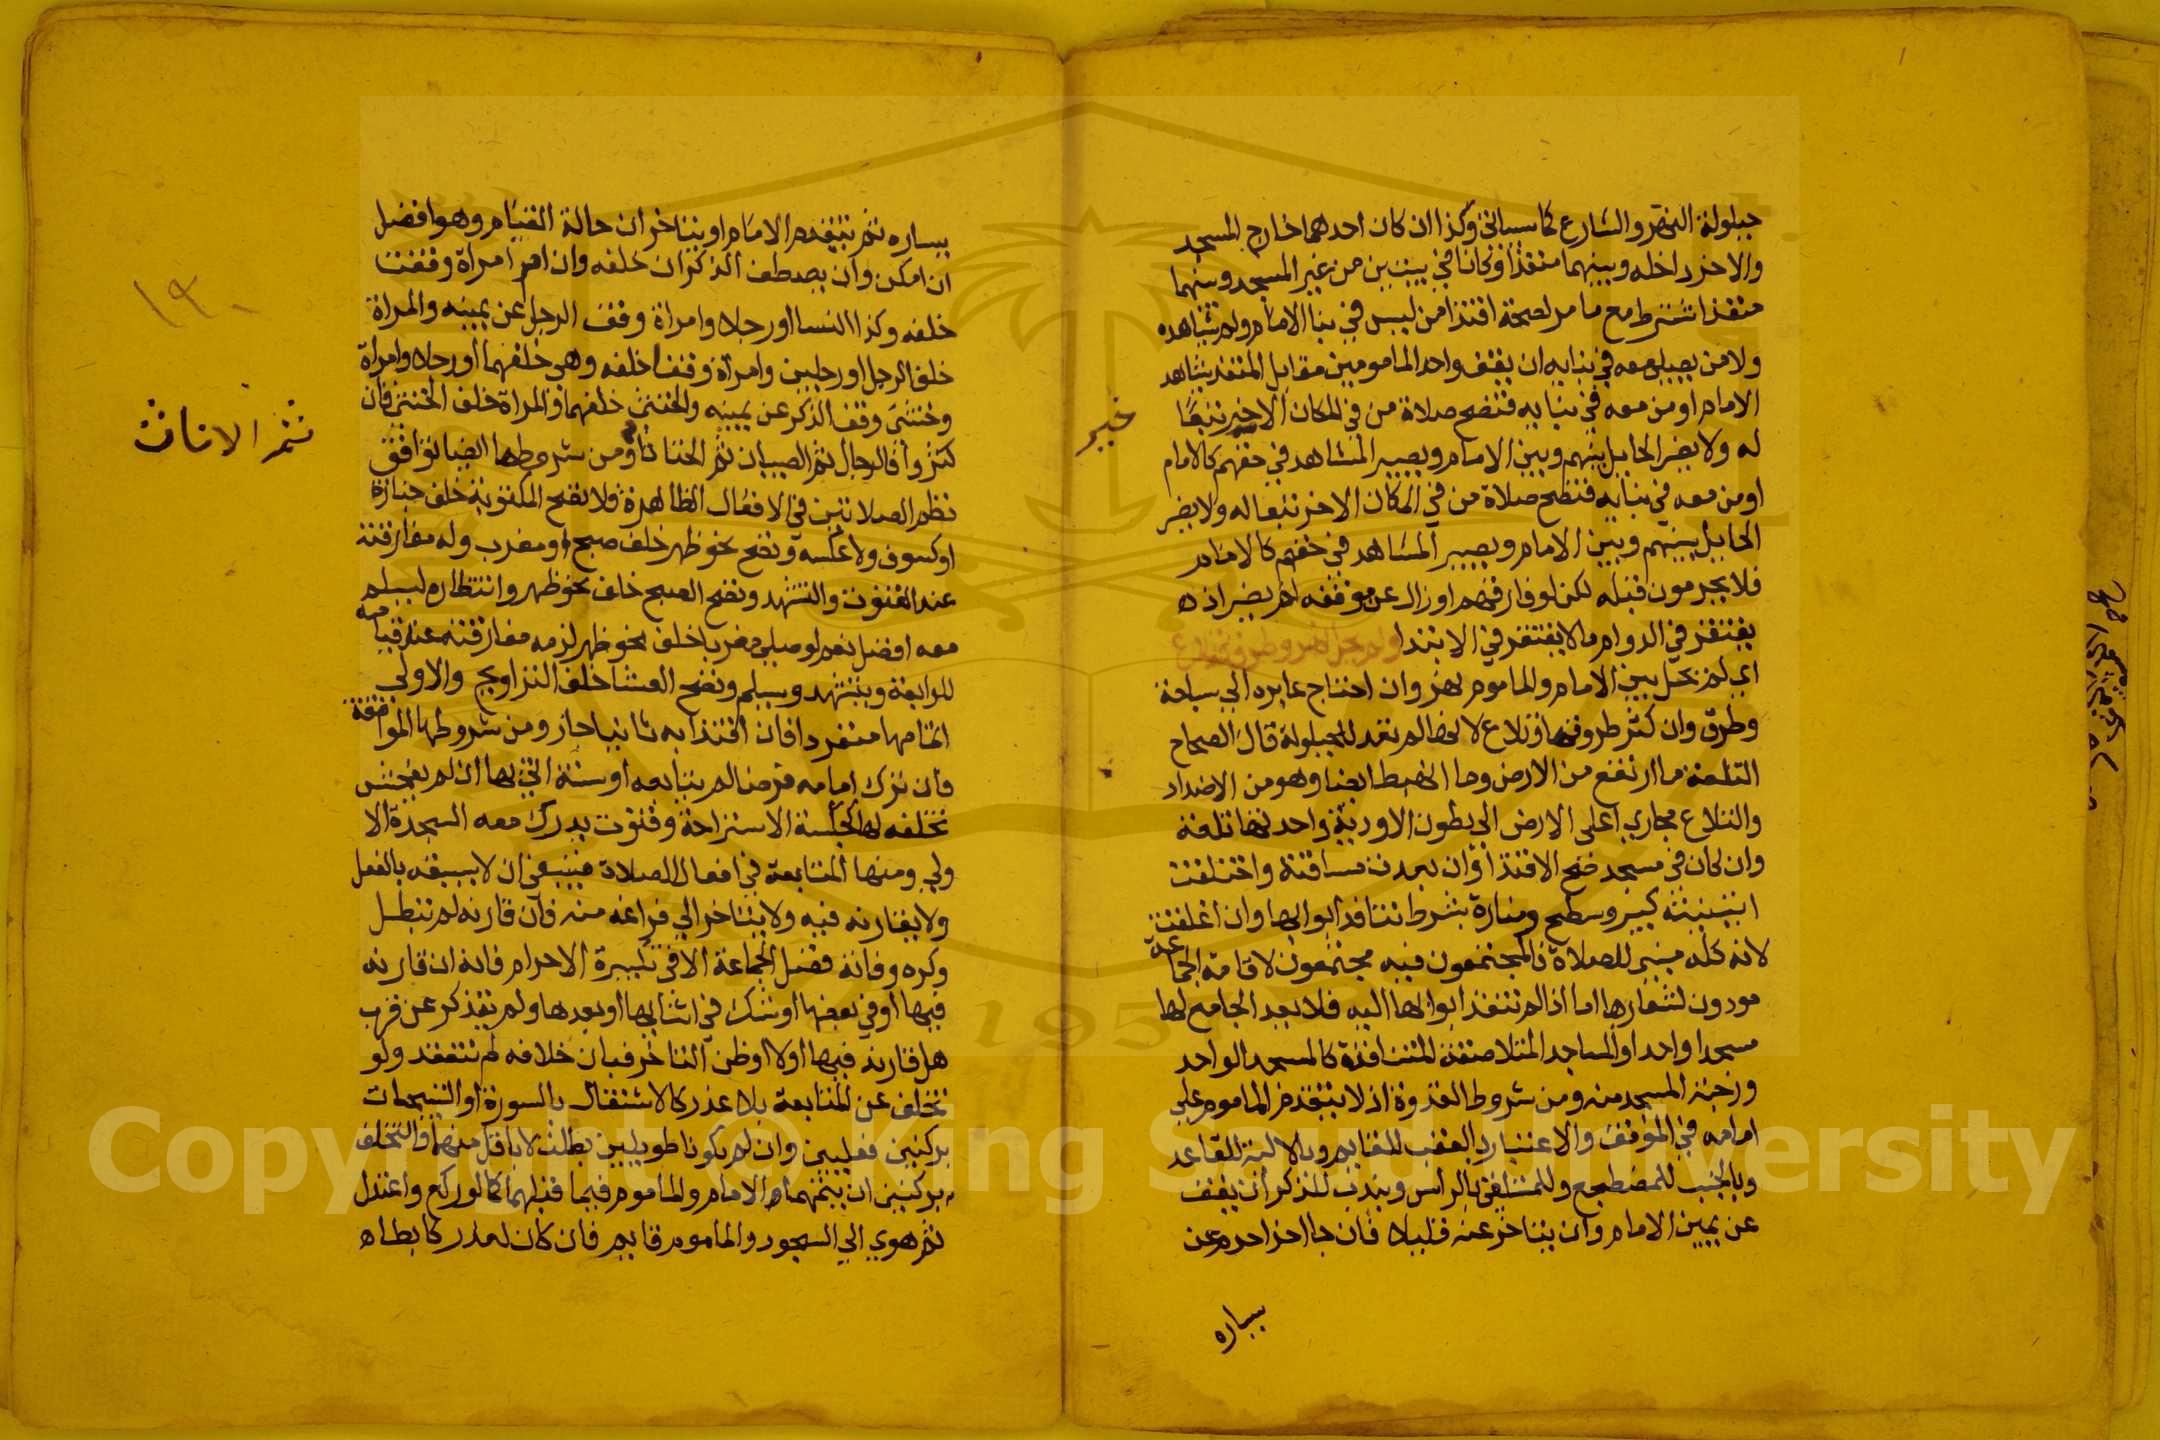 حيلولة النهر والشارع كما سياتي وكذا ان كان احدهما خارج المسجد
والاخر داخله وبينهما منفذ او كانا في بيتين من غير المسجد وبينهما
منفذ اشترط مع ما مر لصحة اقتدا من ليس في بنا الامام ولم يشاهده
ولا من يصلي معه في بنايه ان يقف واحد المامومين مقابل المنفذ يشاهد
الامام او من معه في بنايه فتصح صلاة من في المكان الاخر تبعا
له ولا يضر الحايل بينهم وبين الامام ويصير المشاهد في حقهم كالامام
او من معه في بنايه فتصح صلاة من في المكان الاخر تبعا له ولا يضر
الحايل بينهم وبين الامام ويصير المشاهد في حقهم كالامام
فلا يحرمون قبله لكن لو فارقهم او زال عن موقفه لم يضر اذ
يغتفر في الدوام ما لا يغتفر في الابتدا ولم يحل نهر وطرق وتلاع
اي لم يحل بين الامام والماموم نهر وان احتاج عابره الي سباحة
وطرق وان كثر طروقها وتلاع لانها لم تعد للحيلولة قال الصحاح
التلعة ما ارتفع من الارض وما انهبط ايضا وهو من الاضداد
والتلاع مجاري اعلى الارض الي بطون الاودية واحدتها تلعة
وان كان في مسجد صح الاقتدا وان بعدت مسافته واختلفت
ابنيته كبير وسطح ومنارة بشرط تنافذ ابوابها وان اغلقت
لانه كله مبني للصلاة فالمجتمعون فيه مجتمعون لاقامة الجماعة
مودون لشعارها اما اذا لم تنفذ ابوابها اليه فلا يعد الجامع لها
مسجدا واحدا والمساجد المتلاصقة المتنافذة كالمسجد الواحد
ورحبة المسجد منه ومن شروط القدوة ان لا يتقدم الماموم علي
امامه في الموقف والاعتبار بالعقب للقايم وبالالية للقاعد
وبالجنب للمضطجع وللمستلقي بالراس ويندب للذكر ان يقف
عن يمين الامام وان يتاخر عنه قليلا فان جا اخر احرم عن
يساره
يساره ثم يتقدم الامام او يتاخران حالة القيام وهو افضل
ان امكن وان يصطف الذكران خلفه وان ام امراة وقفت
خلفه وكذا النسا او رجلا وامراة وقف الرجل عن يمينه والمراة
خلف الرجل او رجلين وامراة وقفا خلفه وهي خلفهما او رجلا وامراة
وخنثى وقف الذكر عن يمينه والخنثى خلفهما والمراة خلف الخنثى فان
كثروا فالرجال ثم الصبيان ثم الخناثا ومن شروطها ايضا توافق
نظم الصلاتين في الافعال الظاهرة فلا تصح المكتوبة خلف جنازة
او كسوف ولا عكسه وتصح نحو ظهر خلف صبح ومغرب وله مفارقته
عند القنوت والتشهد وتصح الصبح خلف نحو ظهر وانتظاره ليسلم
معه افضل نعم لو صلى مغربا خلف نحو ظهر لزمه مفارقته عند قيامه
للرابعة ويتشهد ويسلم وتصح العشا خلف التراويح والاولى
اتمامها منفردا فان اقتدا به ثانيا جاز ومن شروطها الموافقة
فان ترك امامه فرضا لم يتابعه او سنة اتي بها ان لم يفحش
تخلفه لها كجلسة الاستراحة وقنوت يدرك معه السجدة الا
ولي ومنها المتابعة في افعال الصلاة فينبغي ان لا يسبقه بالفعل
ولا يقارنه فيه ولا يتاخر الي فراغه منه فان قارنه لم تبطل
وكره وفاته فضل الجماعة الا في تكبيرة الاحرام فانه ان قارنه
فيها او في بعضها او شك في اثنايها او بعدها ولم يتذكر عن قرب
هل قارنه فيها اولا او ظن التاخر فبان خلافه لم تنعقد ولو
تخلف عن المتابعة بلا عذر كالاشتغال بالسورة او التسبيحات
بركنين فعليين وان لم يكونا طويلين بطلت لا باقل منهما والتخلف
بركنين ان يتمهما الامام والماموم فيما قبلهما كما لو ركع واعتدل
ثم هوي الي السجود والماموم قايم فان كان لعذر كابطاه
خير
ثم الاناث
١٣٠
Copyright © King Saud University
1957